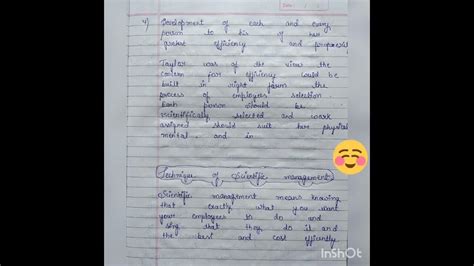 4) Development of each and every
person to his of her
greatest efficiency and prosperity
Taylor was of the view the
concern for efficiency could be
built in right from the
process of employees selection.
Each person should be
scientifically selected and work
assigned should suit her physical
mental. and in
Technique of Scientific management
Scientific management means knowing
that exactly what you want
your employees to do and
that they do it and
the best and cost efficiently
InShOt